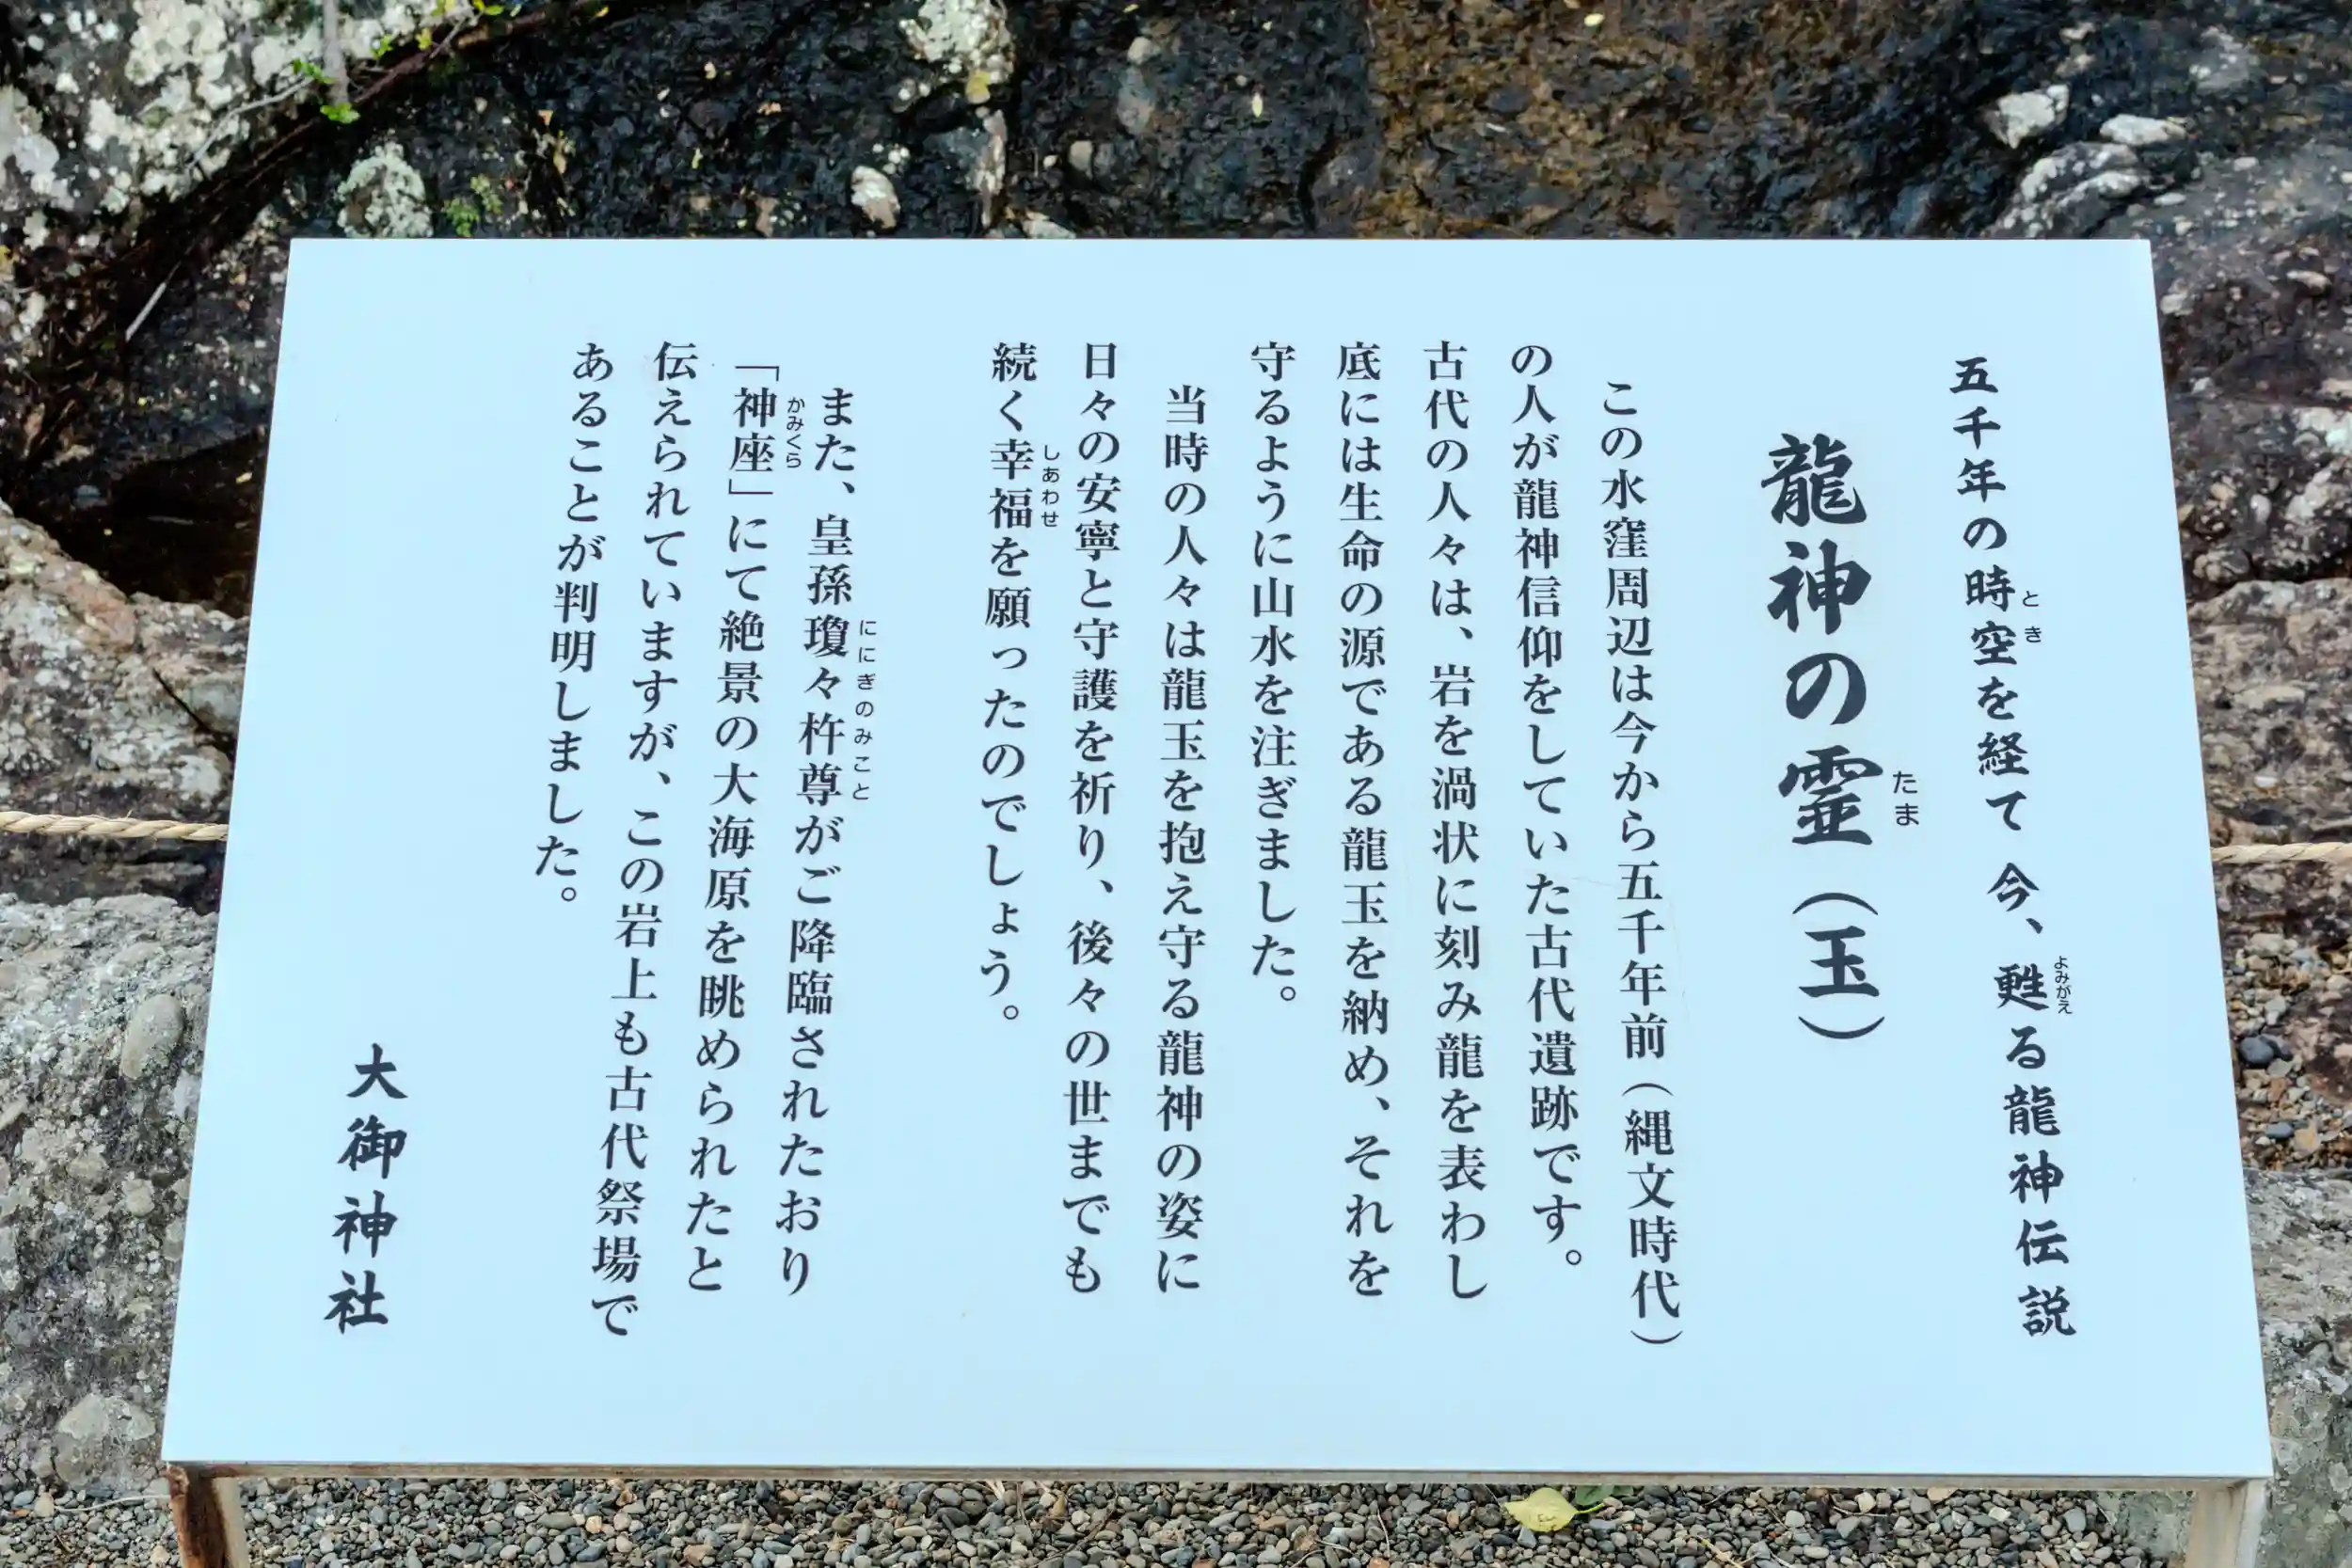 五千年の時空を経て 今、甦る龍神伝説
とき
よみがえ
龍神の霊（玉）
たま
この水窪周辺は今から五千年前（縄文時代）
の人が龍神信仰をしていた古代遺跡です。
古代の人々は、岩を渦状に刻み龍を表わし
底には生命の源である龍玉を納め、それを
守るように山水を注ぎました。
当時の人々は龍玉を抱え守る龍神の姿に
日々の安寧と守護を祈り、後々の世までも
続く幸福を願ったのでしょう。
しあわせ
また、皇孫瓊々杵尊がご降臨されたおり
ににぎのみこと
「神座」にて絶景の大海原を眺められたと
かみくら
伝えられていますが、この岩上も古代祭場で
あることが判明しました。
大御神社